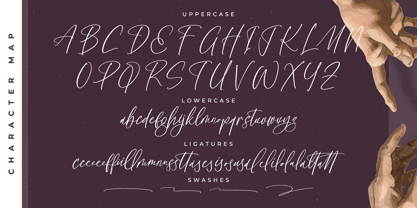 CHARACTER MAP
UPPERCASE
ABCDEFGHIJKLMN
OPQRSTUVWXYZ
LOWERCASE
abcdefghijklmnopqrstuvwxyz
LIGATURES
SWASHES